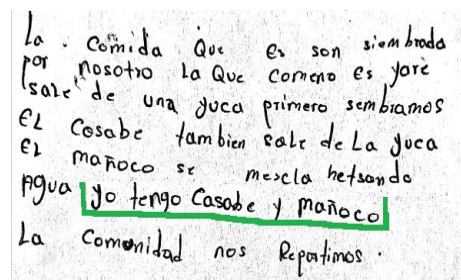 La comida Que es son siembrada
por nosotro La Que comeno es yare
sale de una yuca primero sembramos
EL Cosabe tambien sale de La yuca
EL mañoco se mezcla hetsando
Agua yo tengo Casabe y mañoco
La Comonidad nos Repartimos.